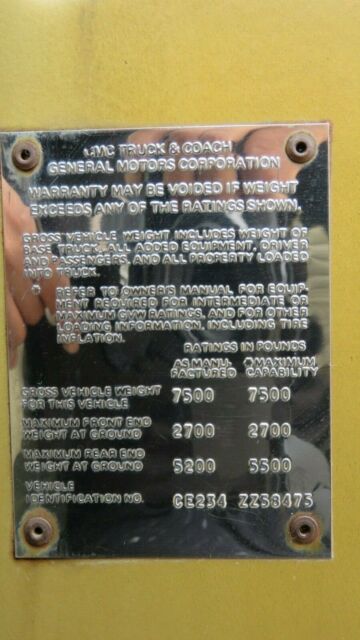 GMC TRUCK & COACH
GENERAL MOTORS CORPORATION
WARRANTY MAY BE VOIDED IF WEIGHT
EXCEEDS ANY OF THE RATINGS SHOWN.
GROSS VEHICLE WEIGHT INCLUDES WEIGHT OF
BASE TRUCK, ALL ADDED EQUIPMENT, DRIVER
AND PASSENGERS, AND ALL PROPERTY LOADED
INTO TRUCK.
* REFER TO OWNER'S MANUAL FOR EQUIP-
MENT REQUIRED FOR INTERMEDIATE OR
MAXIMUM GVW RATINGS, AND FOR OTHER
LOADING INFORMATION, INCLUDING TIRE
INFLATION.
RATINGS IN POUNDS
AS MANU- *MAXIMUM
FACTURED CAPABILITY
GROSS VEHICLE WEIGHT
FOR THIS VEHICLE 7500 7500
MAXIMUM FRONT END
WEIGHT AT GROUND 2700 2700
MAXIMUM REAR END
WEIGHT AT GROUND 5200 5500
VEHICLE
IDENTIFICATION NO. CE234 ZZ58475